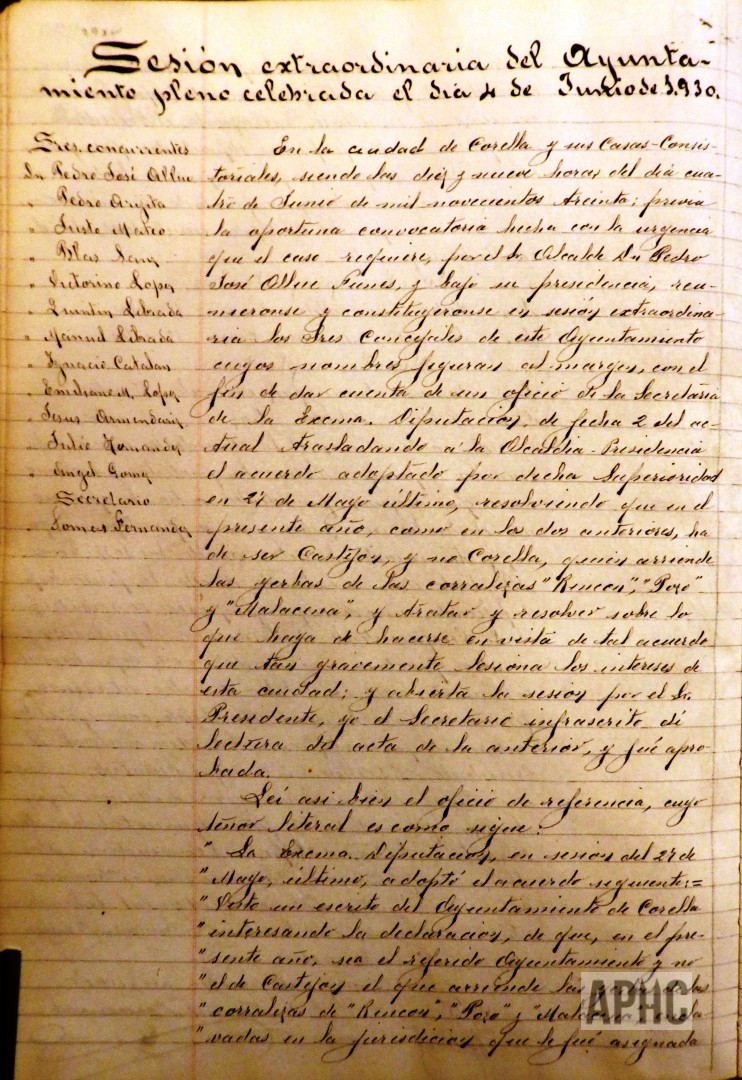 Sesión extraordinaria del Ayunta-
miento pleno celebrada el día 4 de Junio de 1.930.
Sres. concurrentes
Dn Pedro José Allue
" Pedro Argita
" Justo Mateo
" Blas Sanz
" Victorino Lopez
" Quintin Librada
" Manuel Librada
" Ygnacio Catalan
" Emiliano M. Lopez
" Jesus Armendariz
" Julio Fernandez
" Angel Gomez
Secretario
" Tomas Fernandez
En la ciudad de Corella y sus Casas-Consis-
toriales, siendo las diez y nueve horas del dia cua-
tro de Junio de mil novecientos treinta; previa
la oportuna convocatoria hecha con la urgencia
que el caso requiere, por el Sr Alcalde Dn Pedro
José Allue Funes, y bajo su presidencia, reu-
nieronse y constituyeronse en sesión extraordina-
ria los Sres Concejales de este Ayuntamiento
cuyos nombres figuran al margen, con el
fin de dar cuenta de un oficio de la Secretaria
de la Excma. Diputacion, de fecha 2 del ac-
tual trasladando á la Alcaldia-Presidencia
el acuerdo adoptado por dicha Superioridad
en 27 de Mayo último, resolviendo que en el
presente año, como en los dos anteriores, ha
de ser Castejon, y no Corella, quien arriende
las yerbas de las corralizas "Rincon", "Pozo"
y "Malacena", y tratar y resolver sobre lo
que haya de hacerse en vista de tal acuerdo
que tan gravemente lesiona los intereses de
esta ciudad; y abierta la sesion por el Sr.
Presidente, yo el Secretario infrascrito di
lectura del acta de la anterior, y fué apro-
bada.
Leí asi bien el oficio de referencia, cuyo
tenor literal es como sigue:
" La Excma. Diputacion, en sesion del 27 de
" Mayo, último, adoptó el acuerdo siguiente:=
" Visto un escrito del Ayuntamiento de Corella
" interesando la declaracion, de que, en el pre-
" sente año, sea el referido Ayuntamiento y no
" el de Castejon el que arriende las
" corralizas de "Rincon", "Pozo" y
" vadas en la jurisdicion que le fué asignada
APHC